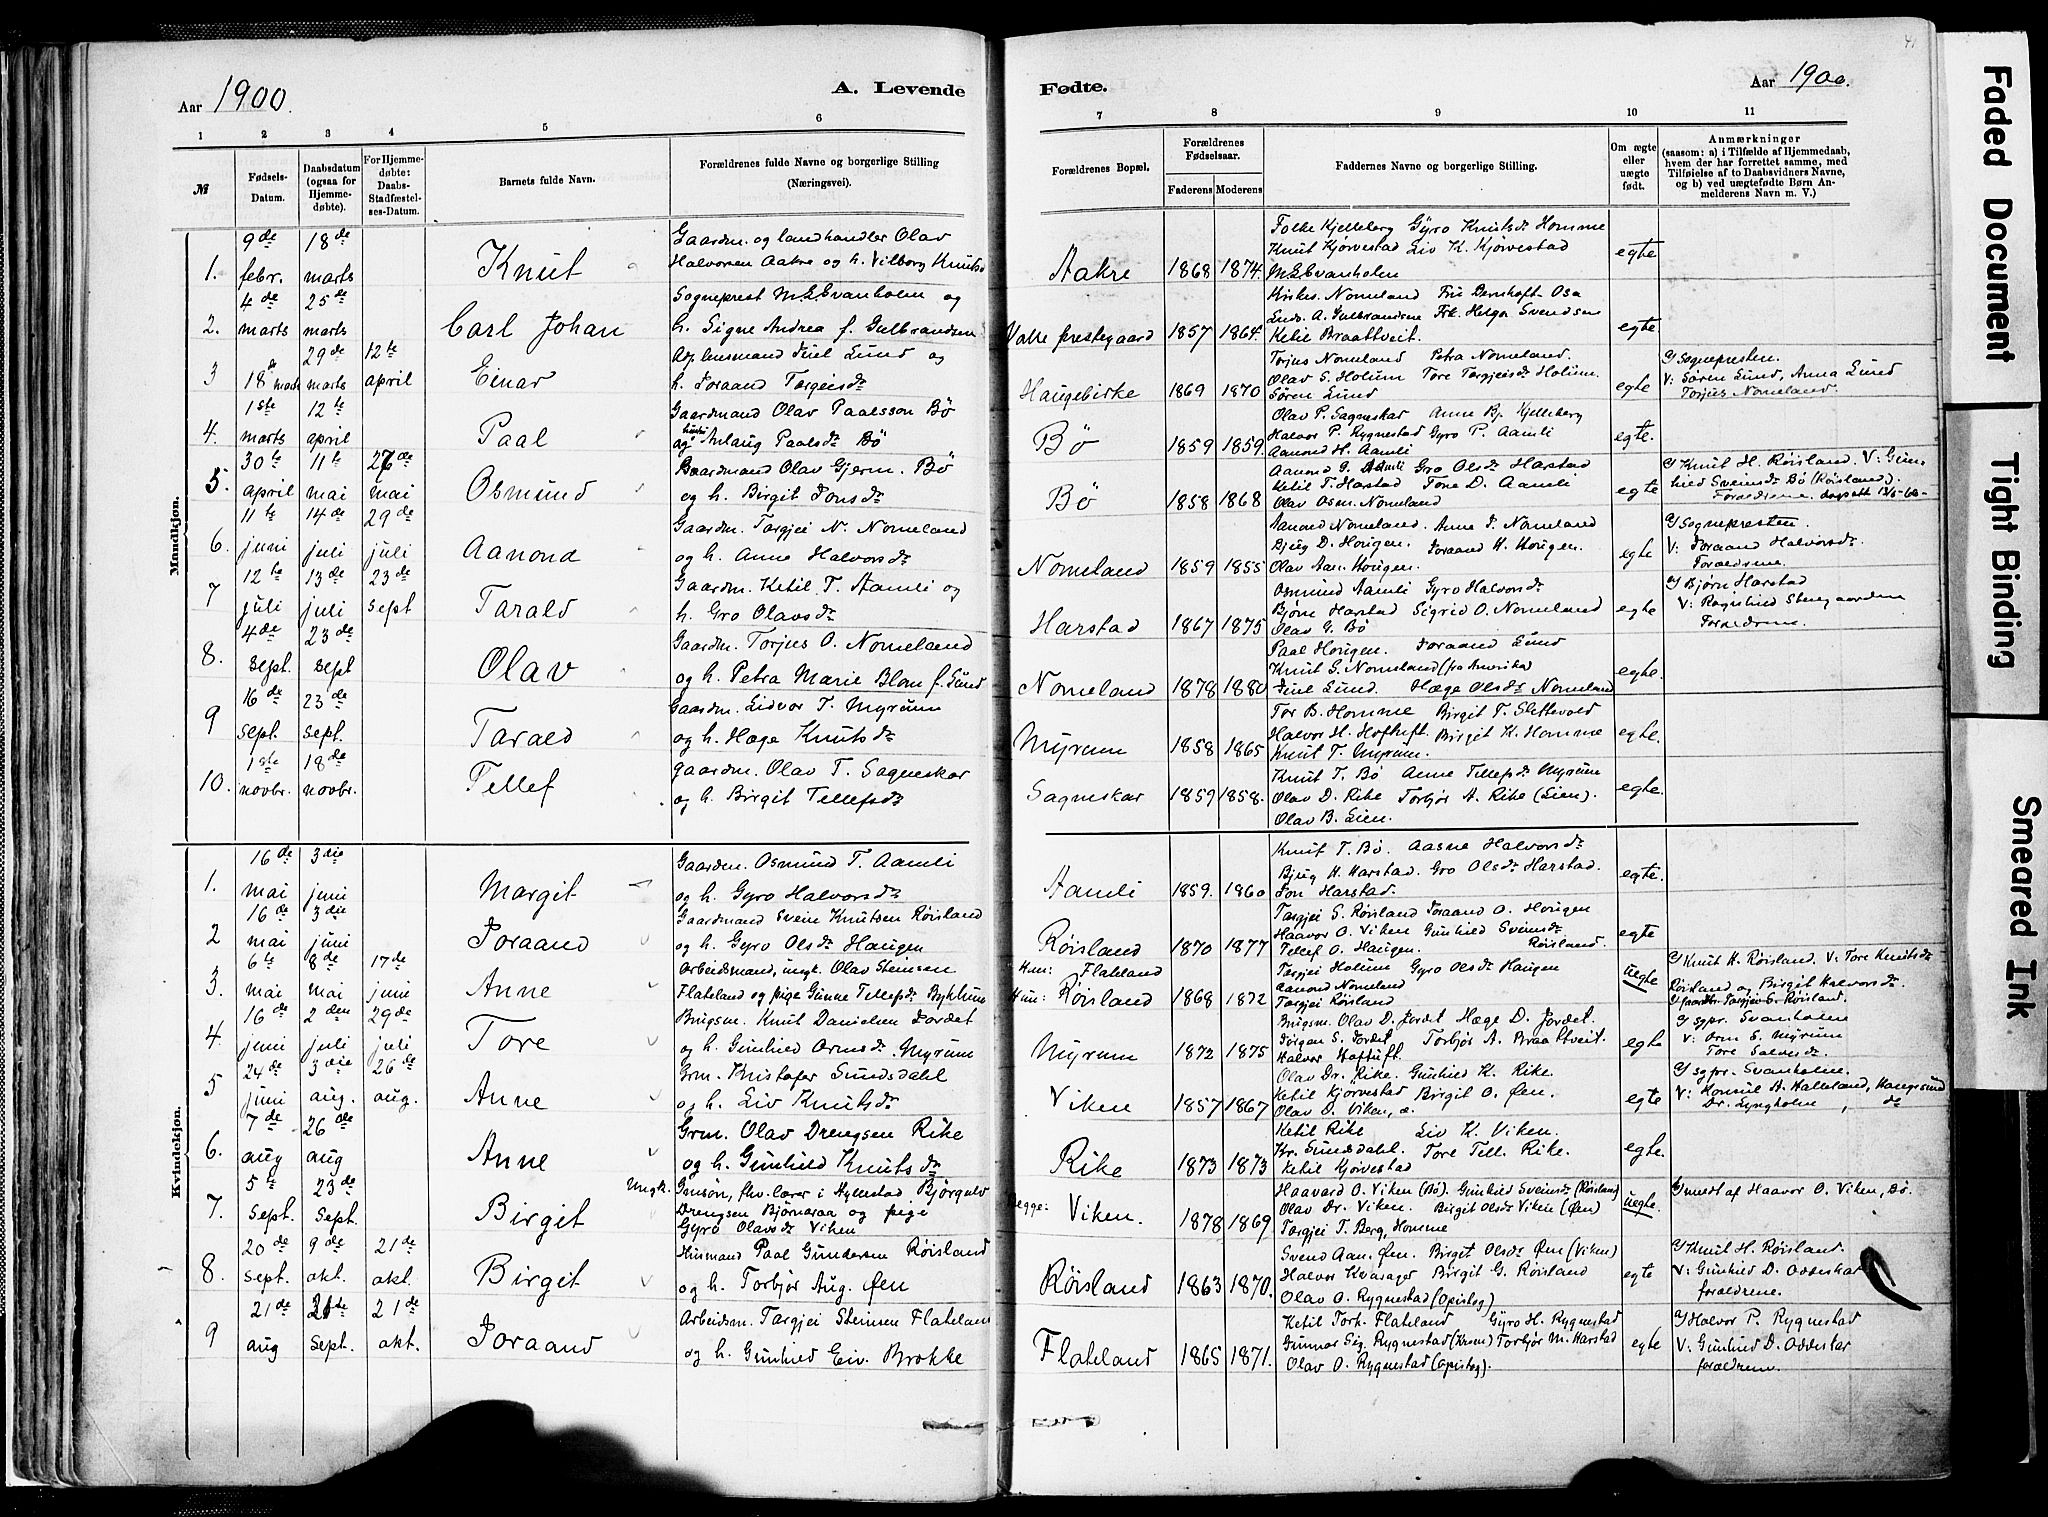 Aar 1900.
A. Levende
Fødte.
Aar 1900.
1 2 3 4 5 6 7 8 9 10 11
№
Fødsels-Datum.
Daabsdatum (ogsaa for Hjemmedøbte).
For Hjemmedøbte: Daabs-Stadfæstelses-Datum.
Barnets fulde Navn.
Forældrenes fulde Navne og borgerlige Stilling (Næringsvei).
Forældrenes Bopæl.
Forældrenes Fødselsaar.
Faderens Moderens
Faddernes Navne og borgerlige Stilling.
Om ægte eller uægte født.
Anmærkninger (saasom: a) i Tilfælde af Hjemmedaab, hvem der har forrettet samme, med Tilføielse af to Daabsvidners Navne, og b) ved uægtefødte Børn Anmelderens Navn m. V.)
Mandkjøn.
1. 9de febr. 18de marts Knut
Gaardm. og landhandler Olav
Halvorsen Aakre og h. Vilborg Knutsd
Aakre 1868 1874.
Folke Kjelleberg Gyro Knutsdr Homme
Knut Kjørvestad Liv K. Kjørvestad
M. E. Svanholm
egte
2. 4de marts 25de marts Carl Johan
Sogneprest M. E. Svanholm og
h. Signe Andrea f. Gulbrandsen
Valle prestegaard 1857 1864.
Kirkes. Nomeland Fru Bernhoft Osa
A. Gulbrandsen Frk. Helga Svendsen
Ketil Braattveit.
egte
3 18de marts 29de marts 12te april Einar
Juel Lund og
h. Joraand Targeisdr
Haugebirke 1869 1870
Torjus Nomeland Petra Nomeland.
Olav S. Holum Tore Targjeisdr Holum.
Søren Lund
egte
Sognepresten.
V: Søren Lund, Anna Lund
Torjus Nomeland.
4. 1ste marts 12te april Paal
Gaardmand Olav Paalsson Bø
og hustru Anlaug Paalsdr Bø
Bø 1859 1859.
Olav P. Sagneskar Anne Bj. Kjelleberg
Halvor P. Rygnestad Gyro P. Aamli
Aanond H. Aamli
egte.
5. 30te april 11te mai 27de mai Osmund
Gaardmand Olav Gjerm. Bø
og h. Birgit Jonsdr
Bø 1858 1868
Aanond G. Aamli Gro Olsdr Harstad
Ketil T. Harstad Tone D. Aamli
Olav Osm. Nomeland
egte
Knut H. Røisland. V: Gunhild Sveinsdr Bø (Røisland).
Forældrene.
6. 11te juni 14de juli 29de juli Aanond
Gaardm. Targjei N. Nomeland
og h. Anne Halvorsdr
Nomeland 1859 1855
Aanond Nomeland. Anne J. Nomeland
Bjug D. Hougen. Joraand H. Hougen.
Olav Aan. Hougen.
egte
Sognepresten.
V: Joraand Halvorsdr.
Forældrene.
7 12te juli 13de juli 23de sept Tarald
Gaardm. Ketil T. Aamli og
h. Gro Olavsdr
Harstad 1867 1875
Osmund Aamli Gyro Halvorsdr
Bjørn Harstad Sigrid O. Nomeland
Olav G. Bø
egte
Bjørn Harstad
V: Ragnhild
Forældrene.
8. 4de sept. 23de sept Olav
Gaardm. Torjus O. Nomeland
og h. Petra Marie Blom f. Lund
Nomeland 1878 1880
Paal Hougen. Joraand Lund
Knut G. Nomeland (fra Amerika)
Juul Lund. Hæge Olsdr Nomeland
egte.
9 16de sept. 23de sept. Tarald
Gaardm. Lidvor T. Myrum
og h. Hæge Knutsdr
Myrum 1858 1865
Tor B. Homme Birgit T. Slettevold
Halvor H. Hoftuft. Birgit K. Homme
Knut T. Myrum.
egte.
10. 1ste novbr. 18de novbr. Tellef
gaardm. Olav T. Sagneskar
og h. Birgit Tellefsdr
Sagneskar 1859 1858.
Knut T. Bø Anne Tellefsdr Myrum
Olav D. Rike Torbjør A. Rike (Lien).
Olav B. Lien.
egte.
Kvindekjøn.
1. 16de mai 3die juni Margit
Gaardm. Osmund T. Aamli
og h. Gyro Halvorsdr
Aamli 1859. 1860
Knut T. Bø. Aasne Halvorsdr
Bjug H. Harstad. Gro Olsdr Harstad.
Jon Harstad.
egte.
2 16de mai 3die juni Joraand
Gaardmand Svein Knutsen Røisland
og h. Gyro Olsdr Haugen
Røisland 1870 1877
Targjei S. Røisland Joraand O. Hougen
Haavor O. Viken Gunhild Sveinsdr Røisland.
Tellef O. Haugen.
egte
3. 6te mai 8de mai 17de juni Anne
Arbeidsmand, ungk. Olav Steinsen
Flateland og pige Gunne Tellefsdr Bykhum
Han: Flateland
Hun: Røisland 1868 1872
Targjei Holum Gyro Olsdr Haugen
Aanond Nomeland
Targjei Røisland
uegte
Knut H. Røisland. V: Tore Knutsdr
Røisland og Birgit Halvorsdr.
Targjei S. Røisland.
4. 16de juni 2den juli 29de juli Tore
Brugsm. Knut Danielsen Jordet
og h. Gunhild Ormsdr Myrum
Myrum 1872 1875
Brugsm. Olav D. Jordet Hæge D. Jordet.
Jørgen S. Jordet Torbjør A. Braattveit.
Halvor Hoftuft.
egte
sgpr. Svanholm
V: Orm S. Myrum
Tore Salvesdr.
5 24de juni 3die aug. 26de aug. Anne
Grm. Kristofer Sundsdahl
og h. Liv Knutsdr
Viken 1857 1867
Olav Dr. Rike. Gunhild K. Rike.
Ketil Kjørvestad Birgit O. Øen.
Olav O. Viken, æ.
egte
sgpr. Svanholm.
V: A. Halleland, Haugesund
Dr. Lyngholm, do
6. 7de aug 26de aug Anne
Grm. Olav Drengsen Rike
og h. Gunhild Knutsdr
Rike 1873 1873
Ketil Rike Liv K. Viken.
Kr. Sundsdahl. Tore Tell. Rike.
Ketil Kjørvestad
egte.
7. 5te sept. 23de sept. Birgit
Ungk. Gmsøn, fhv. lærer i Hyllestad Bjørgulv
Drengsen Bjørnaraa og pige
Gyro Olavsdr Viken
Begge: Viken. 1878 1869
Haavard O. Viken (Bø). Gunhild Sveinsdr (Røisland)
Olav Dr. Viken. Birgit Olsdr Viken (Øen)
Targjei T. Berg, Homme
uegte.
meldt af Haavor O. Viken, Bø.
8. 20de sept. 9de okt. 21de okt. Birgit
Husmand Paal Gundersen Røisland
og h. Torbjør Aug. Øen
Røisland 1863 1870.
Svend Aan. Øen. Birgit Olsdr Øen (Viken)
Halvor Kvasager Birgit G. Røisland
Olav O. Rygnestad (Opistog)
egte
Knut H. Røisland.
V: Gunhild D. Oddeskar
forældrene.
9 21de aug 21de sept. 21de okt. Joraand
Arbeidsm. Targjei Steinsen Flateland
og h. Gunhild Eiv. Brokke
Flateland 1865 1871.
Ketil Tork. Flateland Gyro H. Rygnestad
Gunnar Sig. Rygnestad (Kroen) Torbjør M. Harstad
Olav O. Rygnestad (Opistog).
egte
Halvor P. Rygnestad
V: Gunhild D. Oddeskar
forældrene.
Faded Document
Tight Binding
Smeared Ink